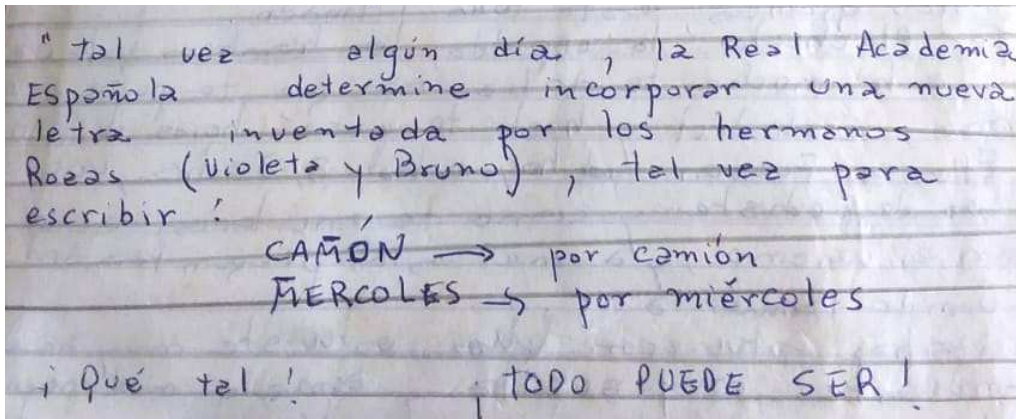 " tal vez algún día, la Real Academia
Española determine incorporar una nueva
letra inventada por los hermanos
Rozas (Violeta y Bruno), tal vez para
escribir :
CAM̃ÓN → por camión
M̃ERCOLES → por miércoles
¡ Qué tal ! ¡ TODO PUEDE SER !